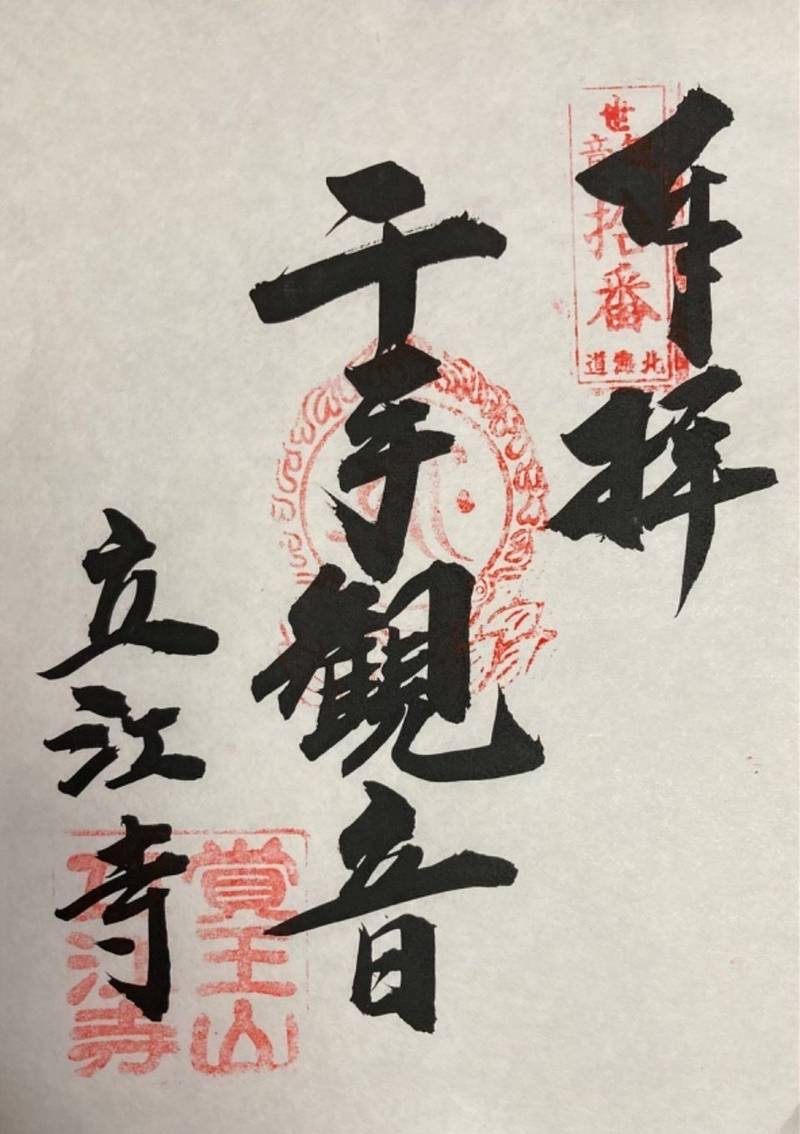 奉拝
拾番
北海道
千手観音
立江寺
覚王山
立江寺